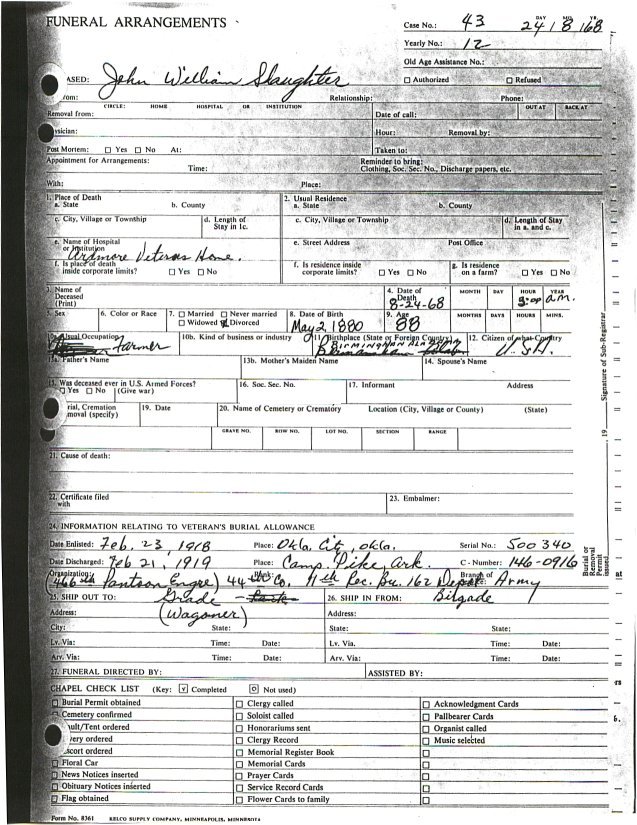 FUNERAL ARRANGEMENTS
Case No.: 43 DAY MO. YR. 24 | 8 | 68
Yearly No.: 12
Old Age Assistance No.:
ASED: John William Slaughter ☐ Authorized ☐ Refused
From: Relationship: Phone:
CIRCLE: HOME HOSPITAL OR INSTITUTION OUT AT BACK AT
Removal from: Date of call:
ysician: Hour: Removal by:
Post Mortem: ☐ Yes ☐ No At: Taken to:
Appointment for Arrangements: Reminder to bring:
Time: Clothing, Soc. Sec. No., Discharge papers, etc.
With: Place:
1. Place of Death 2. Usual Residence
a. State b. County a. State b. County
c. City, Village or Township d. Length of Stay in 1c. c. City, Village or Township d. Length of Stay in a. and c.
e. Name of Hospital or Institution e. Street Address Post Office
Ardmore Veterans Home.
f. Is place of death inside corporate limits? ☐ Yes ☐ No f. Is residence inside corporate limits? ☐ Yes ☐ No g. Is residence on a farm? ☐ Yes ☐ No
3. Name of Deceased (Print) 4. Date of Death 8-24-68 MONTH DAY HOUR YEAR 3:00 a.m.
5. Sex 6. Color or Race 7. ☐ Married ☐ Never married ☐ Widowed ☑ Divorced 8. Date of Birth May 2, 1880 9. Age 88 MONTHS DAYS HOURS MINS.
Usual Occupation Farmer 10b. Kind of business or industry 11. Birthplace (State or Foreign Country) BIRMINGHAM ALABAMA 12. Citizen of what Country U.S.A.
13a. Father's Name 13b. Mother's Maiden Name 14. Spouse's Name
15. Was deceased ever in U.S. Armed Forces? 16. Soc. Sec. No. 17. Informant Address
☐ Yes ☐ No (Give war)
rial, Cremation moval (specify) 19. Date 20. Name of Cemetery or Crematory Location (City, Village or County) (State)
GRAVE NO. ROW NO. LOT NO. SECTION RANGE
21. Cause of death:
22. Certificate filed with 23. Embalmer:
24. INFORMATION RELATING TO VETERAN'S BURIAL ALLOWANCE
Date Enlisted: Feb. 23, 1918 Place: Okla. City, Okla. Serial No.: 500340
Date Discharged: Feb 21, 1919 Place: Camp Pike, Ark. C - Number: 146-0916
Organization: 466th Pontoon Engre) 44 Co, 11th Rec. Bn. 162 Depot Branch of Army
25. SHIP OUT TO: Grade - 26. SHIP IN FROM: Brigade
Address: (Wagoner) Address:
City: State: State: State:
Lv. Via: Time: Date: Lv. Via: Time: Date:
Arv. Via: Time: Date: Arv. Via: Time: Date:
27. FUNERAL DIRECTED BY: ASSISTED BY:
CHAPEL CHECK LIST (Key: ☑ Completed ☐ Not used)
☐ Burial Permit obtained ☐ Clergy called ☐ Acknowledgment Cards
☐ Cemetery confirmed ☐ Soloist called ☐ Pallbearer Cards
ult/Tent ordered ☐ Honorariums sent ☐ Organist called
very ordered ☐ Clergy Record ☐ Music selected
scort ordered ☐ Memorial Register Book ☐
☐ Floral Car ☐ Memorial Cards ☐
☐ News Notices inserted ☐ Prayer Cards ☐
☐ Obituary Notices inserted ☐ Service Record Cards ☐
☐ Flag obtained ☐ Flower Cards to family ☐
Form No. 8361 KELCO SUPPLY COMPANY, MINNEAPOLIS, MINNESOTA
Signature of Sub-Registrar
19
Burial or Removal Permit issued